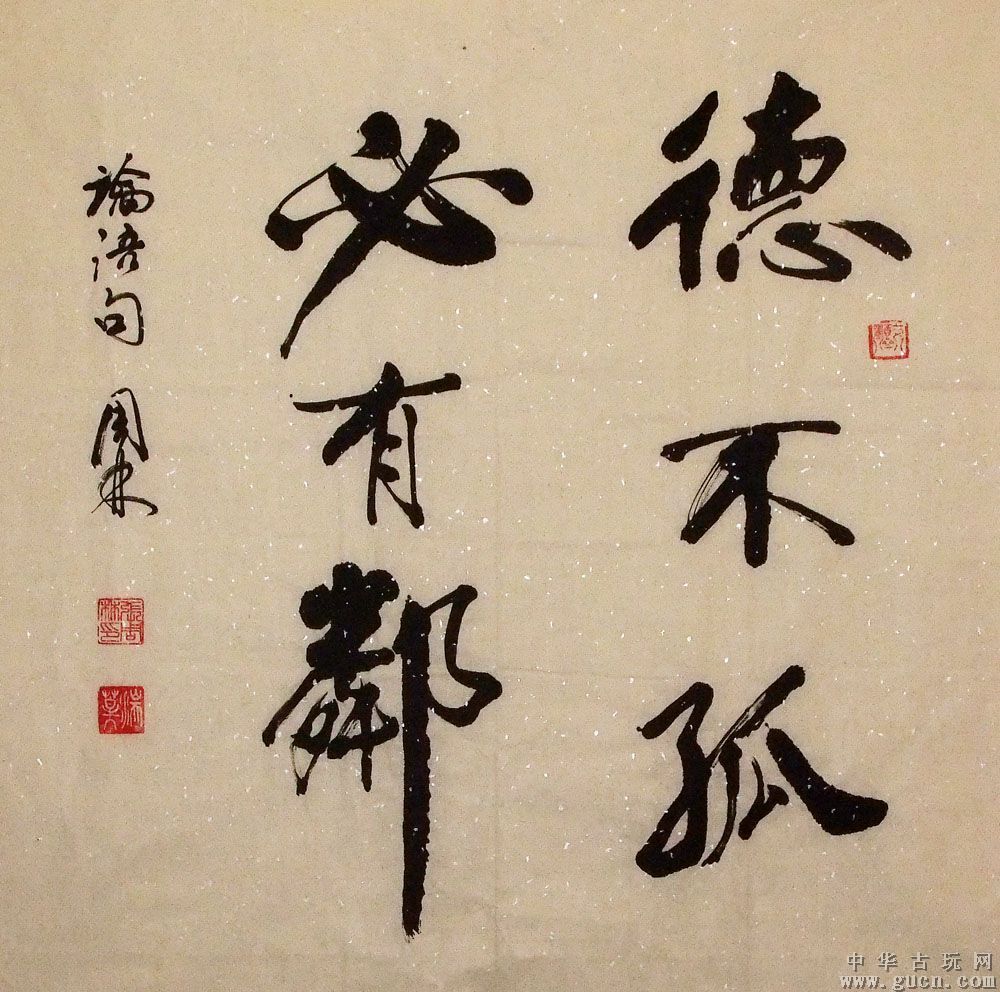 德不孤
必有鄰
論語句 周林
張周林印
中华古玩网
www.gucn.com